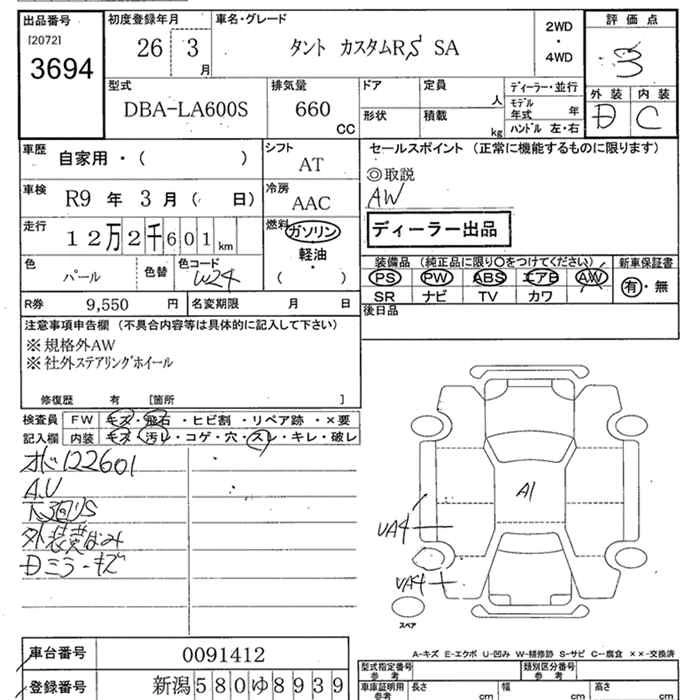 出品番号 初度登録年月 車名・グレード
[2072] 3694
26 3月
タント カスタムRS SA
2WD ・ 4WD
評価点
3
外装 内装
D C
型式 排気量 ドア 定員 ディーラー・並行
DBA-LA600S 660 CC
人 モデル年式 年
形状 積載 kg ハンドル 左・右
車歴 自家用・( )
シフト AT
セールスポイント (正常に機能するものに限ります)
◎取説
AW
車検 R9年 3月 ( 日)
冷房 AAC
ディーラー出品
走行 12万2千601km
燃料 ガソリン 軽油 ・ ( )
色 パール 色替 色コード W24
装備品 (純正品に限り○をつけてください) 新車保証書
PS PW ABS エアB AW 有・無
SR ナビ TV カワ
R券 9,550 円 名変期限 月 日
後日品
注意事項申告欄 (不具合内容等は具体的に記入して下さい)
※規格外AW
※社外ステアリングホイール
修復歴 有 [箇所 ]
検査員 FW キズ・飛石・ヒビ割・リペア跡・×要
記入欄 内装 キズ・汚レ・コゲ・穴・スレ・キレ・破レ
122601
A.U
外装
Dミラーキズ
A1
UA4
UA4
スペア
A-キズ E-エクボ U-凹み W-補修跡 S-サビ C-腐食 ××-交換済
車台番号 0091412
登録番号 新潟580ゆ8939
型式指定番号 参考 類別区分番号 参考
車庫証明用 参考 長さ cm 幅 cm 高さ cm